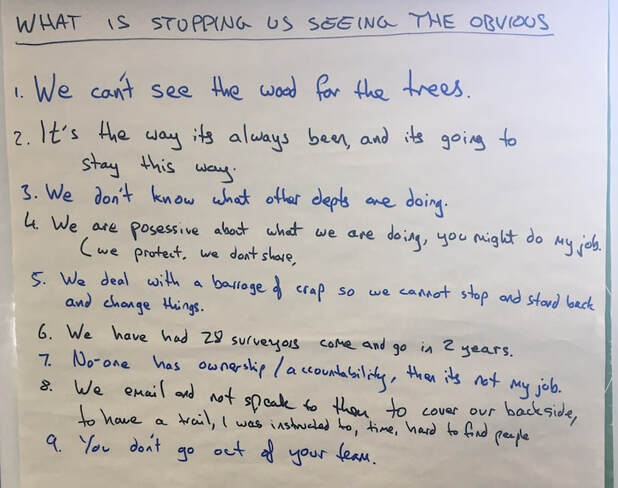 WHAT IS STOPPING US SEEING THE OBVIOUS
1. We can't see the wood for the trees.
2. It's the way its always been, and its going to
stay this way.
3. We don't know what other depts are doing.
4. We are posessive about what we are doing, you might do my job.
(we protect, we dont share,
5. We deal with a barrage of crap so we cannot stop and stand back
and change things.
6. We have had 28 surveyors come and go in 2 years.
7. No-one has ownership/accountability, then its not my job.
8. We email and not speak to them to cover our backside,
to have a trail, I was instructed to, time, hard to find people
9. You don't go out of your team.